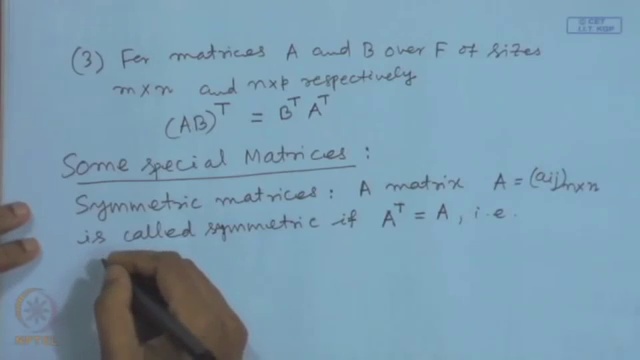 © CET
I.I.T. KGP
(3) For matrices A and B over F of sizes
m×n and n×p respectively
(AB)ᵀ = Bᵀ Aᵀ
Some special Matrices :
Symmetric matrices : A matrix A = (aij)n×n
is called symmetric if Aᵀ = A, i.e.
NPTEL